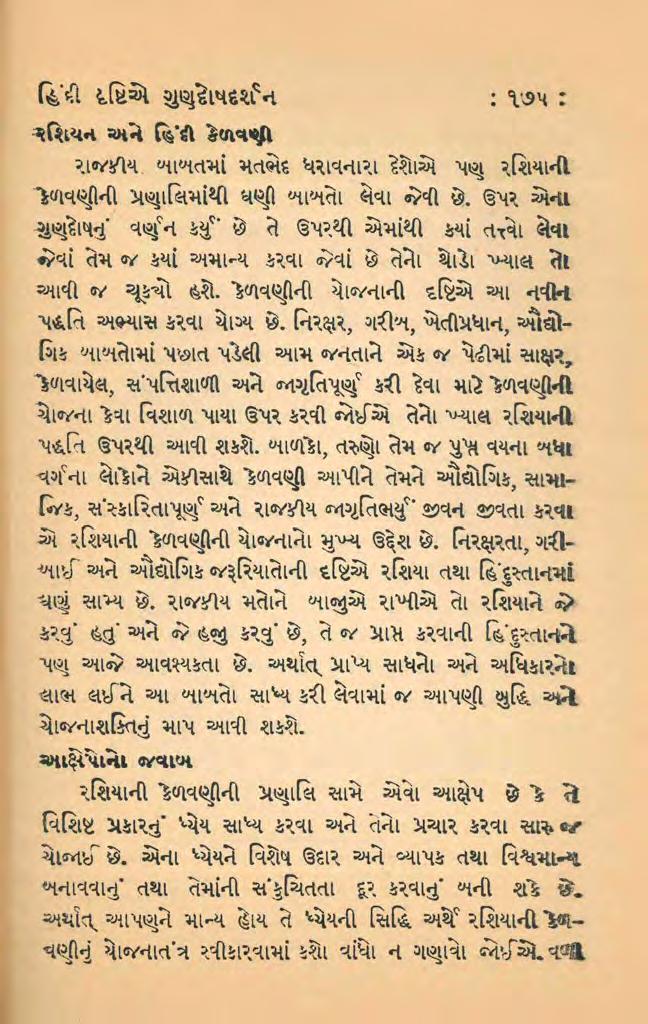 હિંદી દૃષ્ટિએ ગુણદોષદર્શન : ૧૭૫ :
રશિયન અને હિંદી કેળવણી
રાજકીય બાબતમાં મતભેદ ધરાવનારા દેશોએ પણ રશિયાની
કેળવણીની પ્રણાલિમાંથી ઘણી બાબતો લેવા જેવી છે. ઉપર એના
ગુણદોષનું વર્ણન કર્યું છે તે ઉપરથી એમાંથી કયાં તત્ત્વો લેવા
જેવાં તેમ જ કયાં અમાન્ય કરવા જેવાં છે તેનો થોડો ખ્યાલ તો
આવી જ ચૂક્યો હશે. કેળવણીની યોજનાની દૃષ્ટિએ આ નવીન
પદ્ધતિ અભ્યાસ કરવા યોગ્ય છે. નિરક્ષર, ગરીબ, ખેતીપ્રધાન, ઔદ્યો-
ગિક બાબતોમાં પછાત પડેલી આમ જનતાને એક જ પેઢીમાં સાક્ષર,
કેળવાયેલ, સંપત્તિશાળી અને જાગૃતિપૂર્ણ કરી દેવા માટે કેળવણીની
યોજના કેવા વિશાળ પાયા ઉપર કરવી જોઈએ તેનો ખ્યાલ રશિયાની
પદ્ધતિ ઉપરથી આવી શકશે. બાળકો, તરુણો તેમ જ પુખ્ત વયના બધા
વર્ગના લોકોને એકીસાથે કેળવણી આપીને તેમને ઔદ્યોગિક, સામા-
જિક, સંસ્કારિતાપૂર્ણ અને રાજકીય જાગૃતિભર્યું જીવન જીવતા કરવા
એ રશિયાની કેળવણીની યોજનાનો મુખ્ય ઉદ્દેશ છે. નિરક્ષરતા, ગરી-
બાઈ અને ઔદ્યોગિક જરૂરિયાતોની દૃષ્ટિએ રશિયા તથા હિંદુસ્તાનમાં
ઘણું સામ્ય છે. રાજકીય મતોને બાજુએ રાખીએ તો રશિયાને જે
કરવું હતું અને જે હજી કરવું છે, તે જ પ્રાપ્ત કરવાની હિંદુસ્તાનને
પણ આજે આવશ્યકતા છે. અર્થાત્ પ્રાપ્ય સાધનો અને અધિકારનો
લાભ લઈને આ બાબતો સાધ્ય કરી લેવામાં જ આપણી બુદ્ધિ અને
યોજનાશક્તિનું માપ આવી શકશે.
આક્ષેપોનો જવાબ
રશિયાની કેળવણીની પ્રણાલિ સામે એવો આક્ષેપ છે કે તે
વિશિષ્ટ પ્રકારનું ધ્યેય સાધ્ય કરવા અને તેનો પ્રચાર કરવા સારુ જ
યોજાઈ છે. એના ધ્યેયને વિશેષ ઉદાર અને વ્યાપક તથા વિશ્વમાન્ય
બનાવવાનું તથા તેમાંની સંકુચિતતા દૂર કરવાનું બની શકે છે.
અર્થાત્ આપણને માન્ય હોય તે ધ્યેયની સિદ્ધિ અર્થે રશિયાની કેળ-
વણીનું યોજનાતંત્ર સ્વીકારવામાં કશો વાંધો ન ગણાવો જોઈએ. વળી